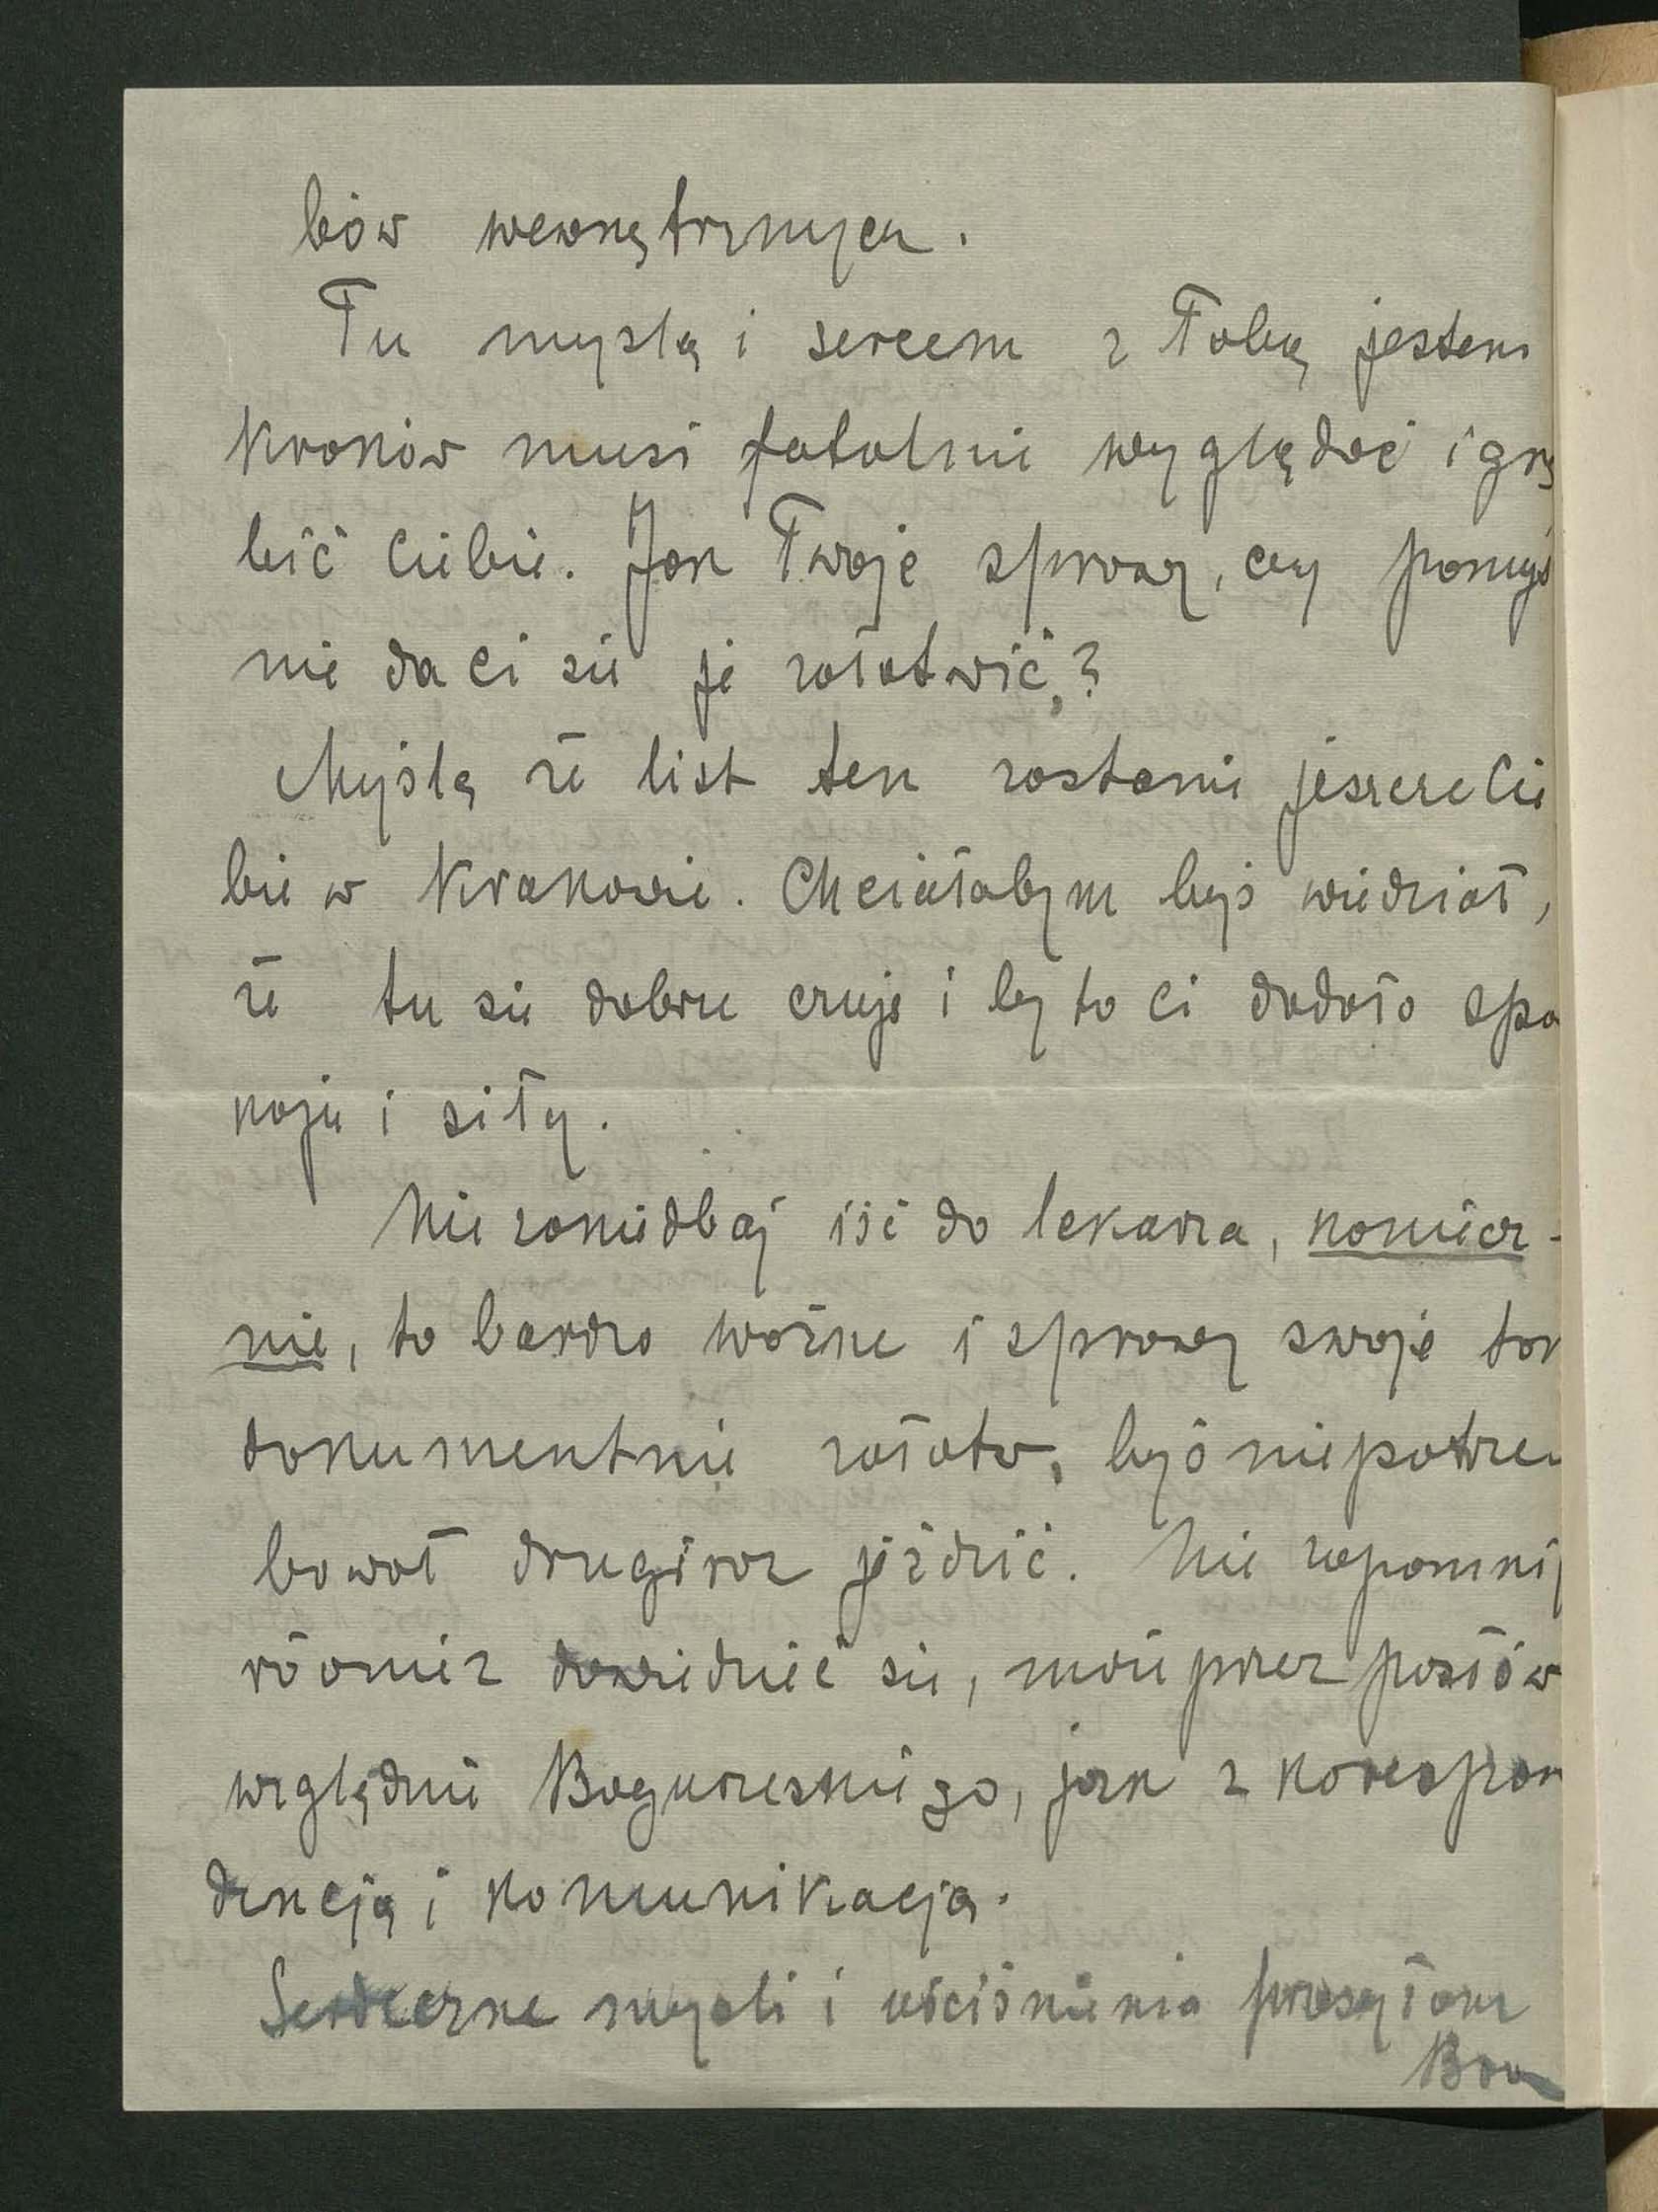 bów wewnętrznych.
Tu myślą i sercem z Tobą jestem
Kraków musi fatalnie wyglądać i gnę
bić Ciebie. Jak Twoje sprawy, czy pomyś
nie da ci się je załatwić?
Myślę że list ten zastanie jeszcze Cie
bie w Krakowie. Chciałabym byś wiedział,
że tu się dobrze czuję i by to ci dodało spo
koju i siły.
Nie zaniedbaj iść do lekarza, koniecz-
nie, to bardzo ważne i sprawy swoje tak
dokumentnie załatw, byś nie potrze
bował drugi raz jeździć. Nie zapomnij
również dowiedzieć się, może przez posłów
względnie Boguszewskiego, jak z korespon
dencją i komunikacją.
Serdeczne myśli i uściśnienia przesyłam